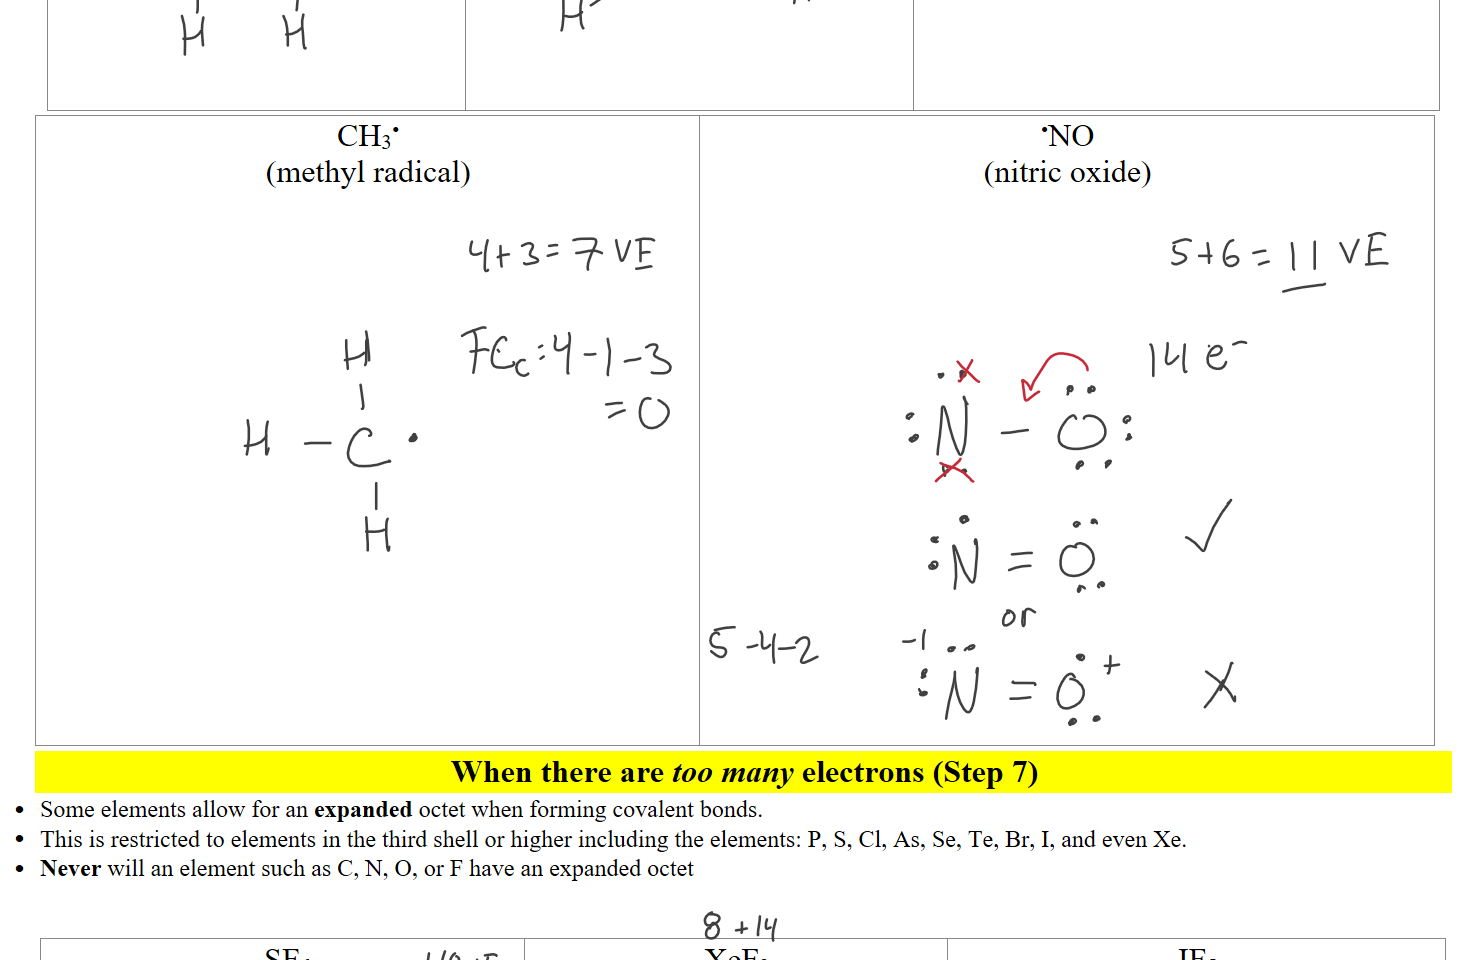 H H H
CH₃•
(methyl radical)
4+3=7 VE
FCc: 4-1-3
=0
H
H - C •
H
•NO
(nitric oxide)
5+6=11 VE
14 e⁻
:N - O:
:N = O
or
5-4-2
-1
:N = O +
When there are too many electrons (Step 7)
• Some elements allow for an expanded octet when forming covalent bonds.
• This is restricted to elements in the third shell or higher including the elements: P, S, Cl, As, Se, Te, Br, I, and even Xe.
• Never will an element such as C, N, O, or F have an expanded octet
8 + 14